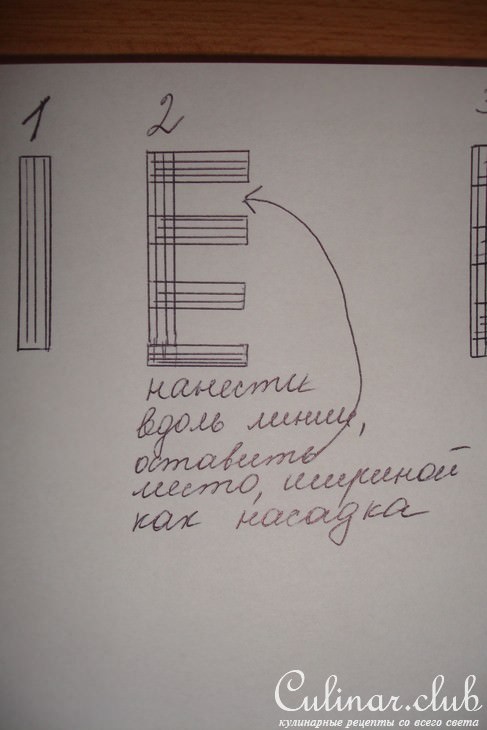 1
2
3
нанести
вдоль линии,
оставить
место, шириной
как насадка
Culinar.club
кулинарные рецепты со всего света